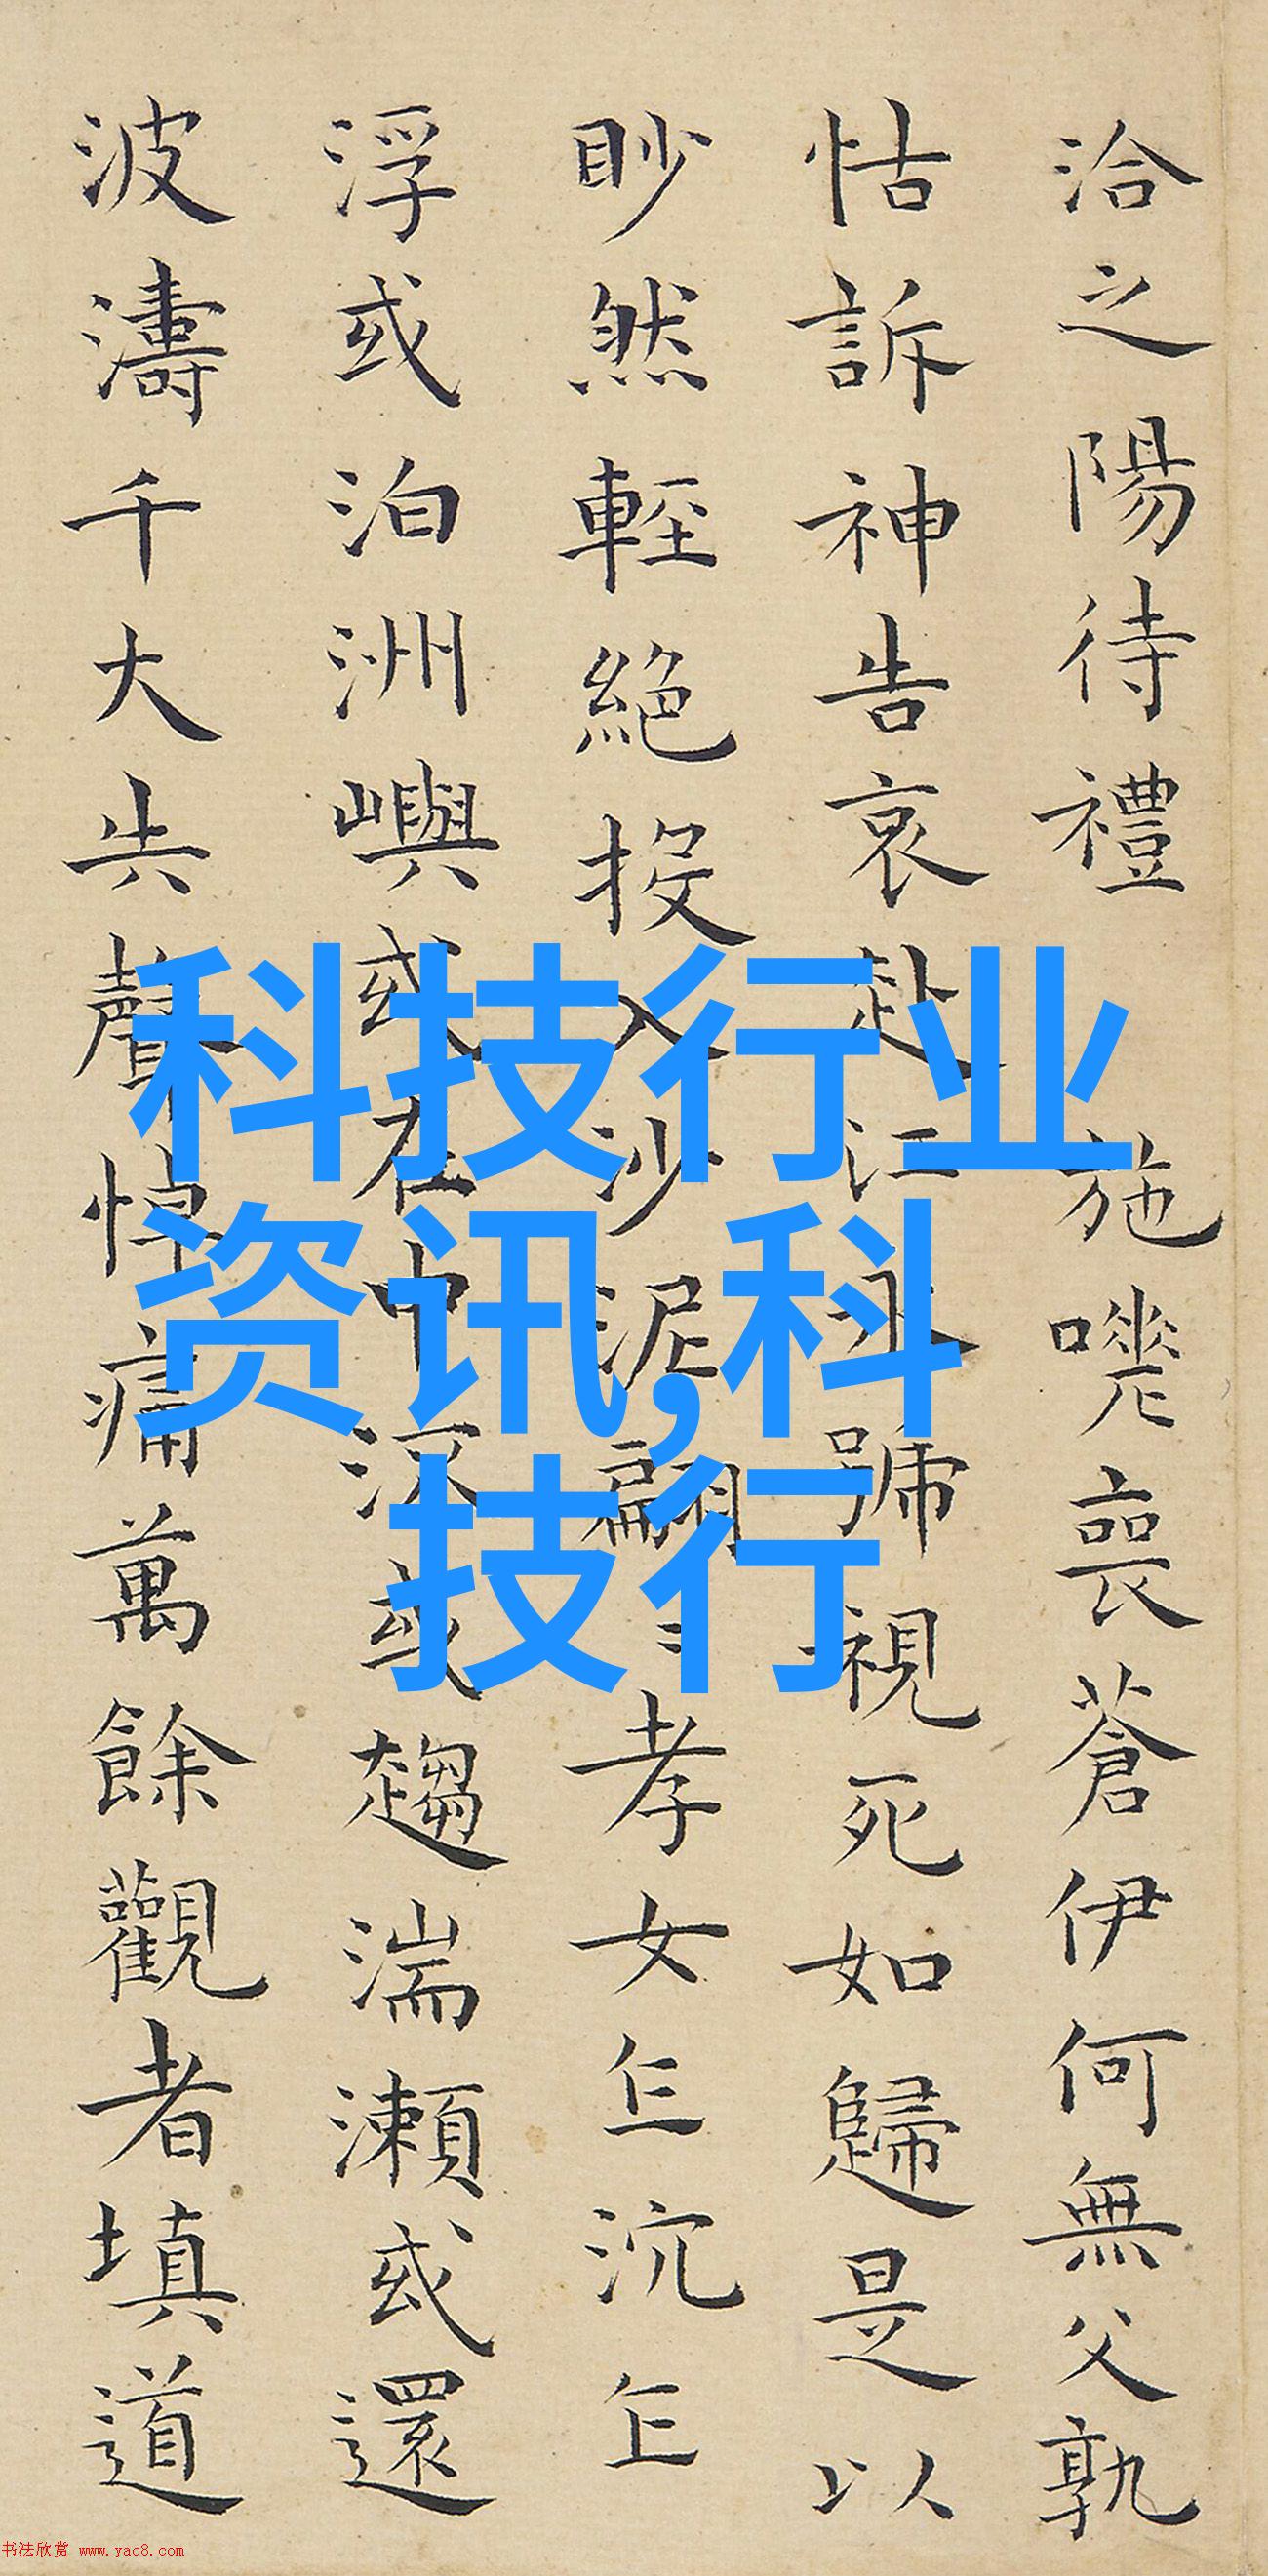 洽之陽待禮 施嗟喪蒼伊何無父孰
怙訴神告哀赴江永號視死如歸是以
眇然輕絕投入沙泥翩〻孝女乍沉乍
浮或泊洲嶼或在中 或趨湍瀨或還
波濤千大失聲悼痛萬餘觀者填道
科技行业
资讯,科
技行
书法欣赏 www.yac8.com